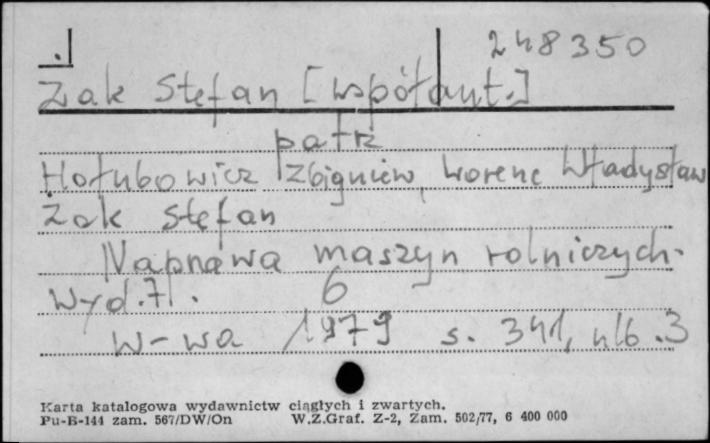 248350
Żak Stefan [współaut.]
patrz
Hołubowicz Zbigniew, Worenc Władysław
Żak Stefan
Naprawa maszyn rolniczych.
Wyd. 7. 6
W-wa 1979 s. 341, nlb. 3
Karta katalogowa wydawnictw ciągłych i zwartych.
Pu-B-144 zam. 567/DW/On W.Z.Graf. Z-2, Zam. 502/77, 6 400 000